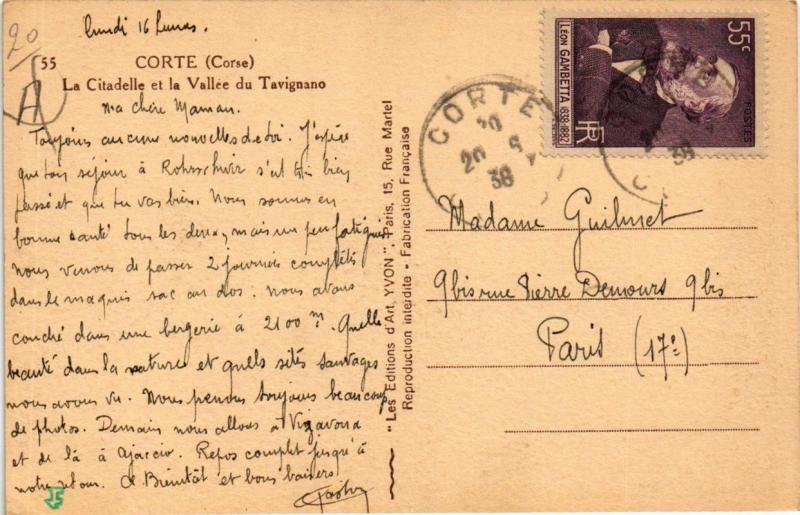 lundi 16 heures.
20
55 CORTE (Corse)
La Citadelle et la Vallée du Tavignano
A
Ma chère Maman.
Toujours aucune nouvelles de toi. J'espère
que ton séjour à s'est très bien
passé et que tu vas bien. Nous sommes en
bonne santé tous les deux, mais un peu fatigués
nous venons de passer 2 journées complètes
dans le maquis sac au dos. nous avons
couché dans une bergerie à 2100 m. Quelle
beauté dans la nature et quels sites sauvages
nous avons vu. Nous prenons toujours beaucoup
de photos. Demain nous allons à Vizzavona
et de là à Ajaccio. Repos complet jusqu'à
notre retour. A Bientôt et bons baisers
"Les Editions d'Art, YVON", Paris, 15, Rue Martel
Reproduction interdite - Fabrication Française
CORTE
20
20 9
38
55c
LÉON GAMBETTA 1838-1882
POSTES
RF
Madame Guilmet
9bis rue Pierre Demours 9bis
Paris (17e)